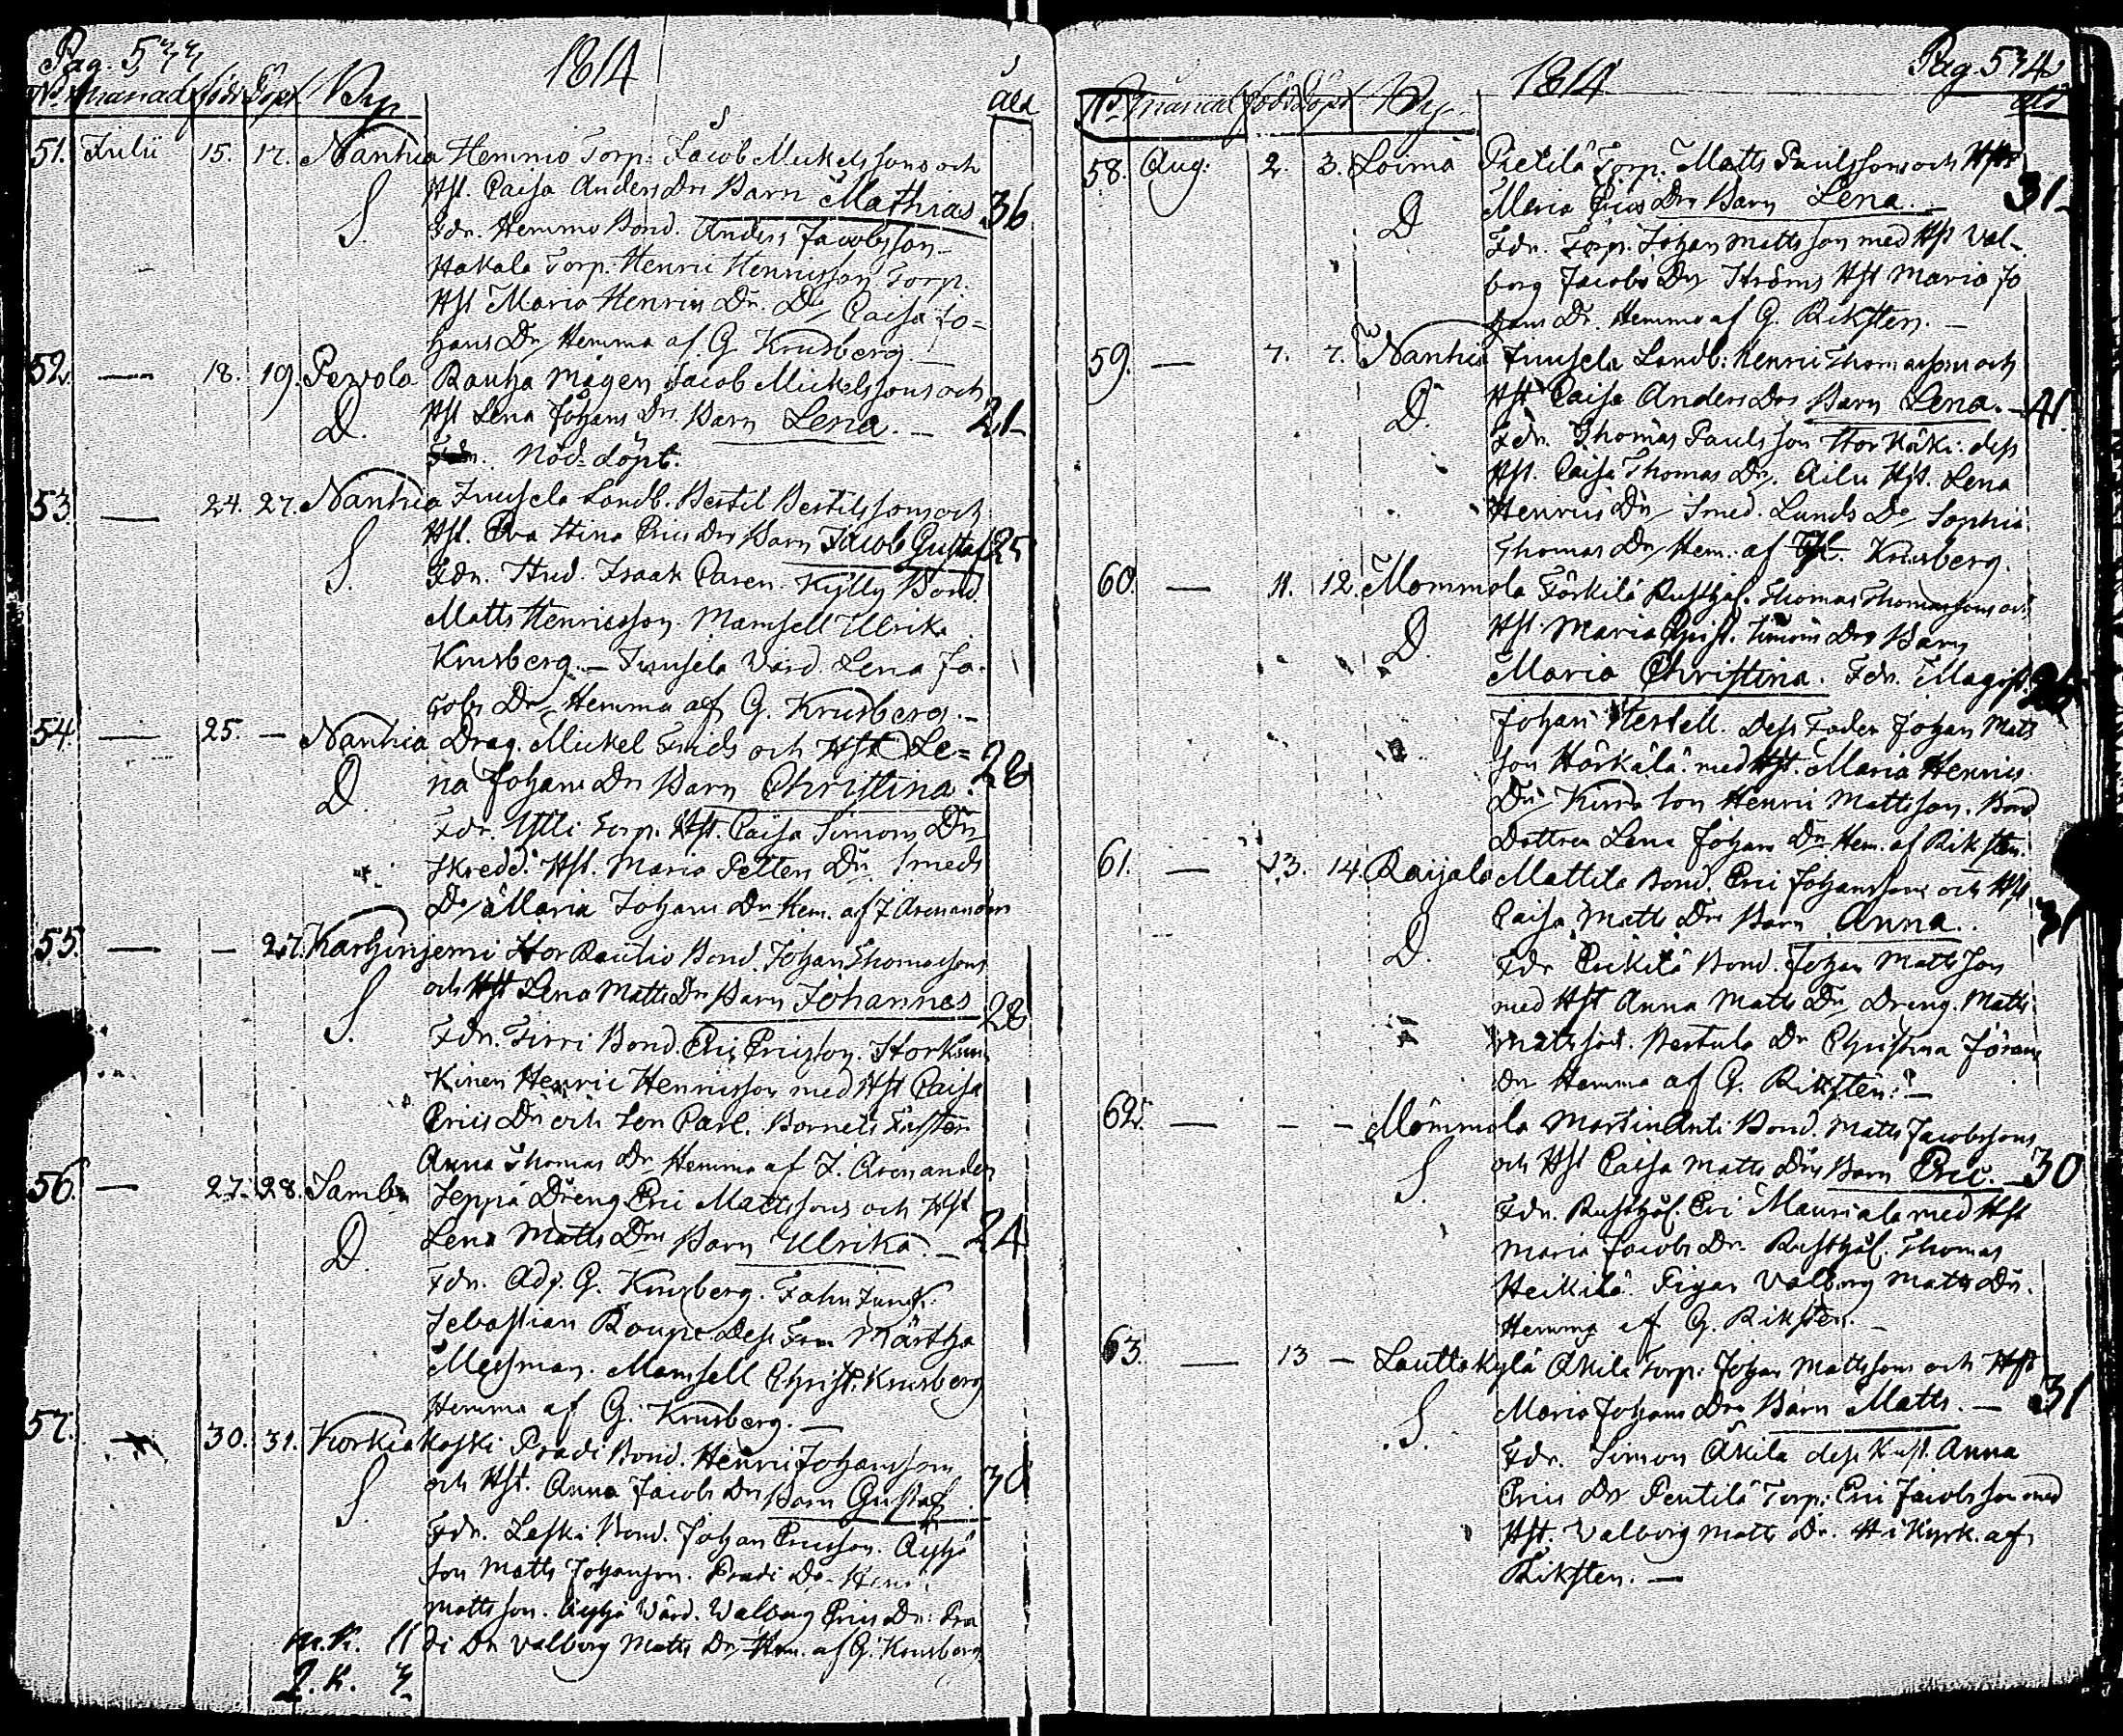 Pag. 533
1814
No Månad född Döpt By
åld
51. Julii 15. 17. Nanhia Hemmio Torp. Jacob Mickelssons och
Hst. Caisa Anders Drs Barn Mathias 36
S. Fdr. Hemmo Bond. Anders Jacobsson
Hakala Torp. Henric Henricsson Torp.
Hst Maria Henrics Dr. Do Caisa Jo=
hans Dr Hemma af G. Krusberg.
52. — 18. 19. Pesvola Rauha Mågen Jacob Mickelssons och
D. Hst Lena Johans Drs Barn Lena. — 21
Fdr. Nöd-döpt.
53. — 24. 27. Nanhia Juusela Landb. Bertil Bertilssons och
Hst. Eva Stina Erics Drs Barn Jacob Gustaf 25
S. Fdr. Stud. Isaak Caren. Kylly Bond.
Matts Henricsson. Mamsell Ulrika
Krusberg. — Juusela Värd. Lena Ja-
cobs Dr Hemma af G. Krusberg. —
54. — 25. — Nanhia Drag. Mickel Frids och Hst Le=
D. na Johans Drs Barn Christina. 28
Fdr. Ylli Torp. Hst. Caisa Simons Dr
Skredd. Hst. Maria Petters Dr. Smeds
Do Maria Johans Dr Hem. af J. Arenander
55. — — 27. Karhiniemi Stor Rautio Bond. Johan Thomassons
och Hst Lena Matts Drs Barn Johannes 28
S. Fdr. Tirri Bond. Eric Ericsson. Stor
kinen Henric Henricsson med Hst Caisa
Erics Dr och Son Carl. Barnets Faster
Anna Thomas Dr Hemma af J. Arenander
56. — 27. 28. Sambu Seppä Dreng Eric Mattssons och Hst
D. Lena Matts Drs Barn Ulrika. — 24
Fdr. Adj. G. Krusberg. Fahnjunk.
Sebastian Roupe Dess Fru Märtha
Messman. Mamsell Christ. Krusberg
Hemma af G. Krusberg. —
57. — 30. 31. Korkiakoski Pradi Bond. Henric Johanssons
och Hst. Anna Jacobs Drs Barn Gustaf. 30
S. Fdr. Laski Bond. Johan Ericsson.
Son Matts Johansson. Pradi Do
Mattsson. Värd. Walborg Erics Dr. Pra
di Dr Valborg Matts Dr Hem. af G. Krusberg.
m.k. 11
q.k. 3
Pag. 534
1814
No Månad född Döpt By
åld
58. Aug: 2. 3. Loima Pietilä Torp. Matts Paulssons och Hst
Maria Erics Drs Barn Lena. — 31
D. Fdr. Torp. Johan Mattsson med Hst Val-
borg Jacobs Dr Ströms Hst Maria Jo
hans Dr. Hemma af G. Riksten. —
59. — 7. 7. Nanhia Juusela Landb: Henric Thomassons och
D. Hst Caisa Anders Drs Barn Lena. — 41.
Fdr. Thomas Paulsson Stor Käki. dess
Hst. Caisa Thomas Dr. Ailu Hst. Lena
Henrics Dr Smed. Lunds Do Sophia
Thomas Dr Hem. af Krusberg.
60. — 11. 12. Mommola Förkilä Rusthål. Thomas Thomassons och
D. Hst. Maria Christ. Simons Drs Barn
Maria Christina. Fdr. Magist. 26
Johan Dess Fader Johan Mats
son Härkälä med Hst. Maria Henrics
Dr Son Henric Mattsson. Bond
Dottren Lena Johans Dr Hem. af Riksten.
61. — 13. 14. Raijala Mattila Bond. Eric Johanssons och Hst
Caisa Matts Drs Barn Anna. 31
D. Fdr Erickilä Bond. Johan Mattsson
med Hst Anna Matts Dr Dreng. Matts
Mattsson. Bertula Dr Christina Jörans
Dr Hemma af G. Riksten. —
62. — — — Mommola Martin Anti Bond. Matts Jacobssons
och Hst Caisa Matts Drs Barn Eric. — 30
S. Fdr. Rusthål. Eric Mauriala med Hst
Maria Jacobs Dr. Rusthål. Thomas
Heikilä. Pigan Valborg Matts Dr.
Hemma af G. Riksten. —
63. — 13 — Lauttakylä Äkilä Torp: Johan Mattssons och Hst
Maria Johans Drs Barn Matts. — 31
S. Fdr. Simon Äkilä dess Hust. Anna
Erics Dr Pentilä Torp: Eric Jacobsson med
Hst. Valborg Matts Dr. H i Kyrk. af
Riksten. —